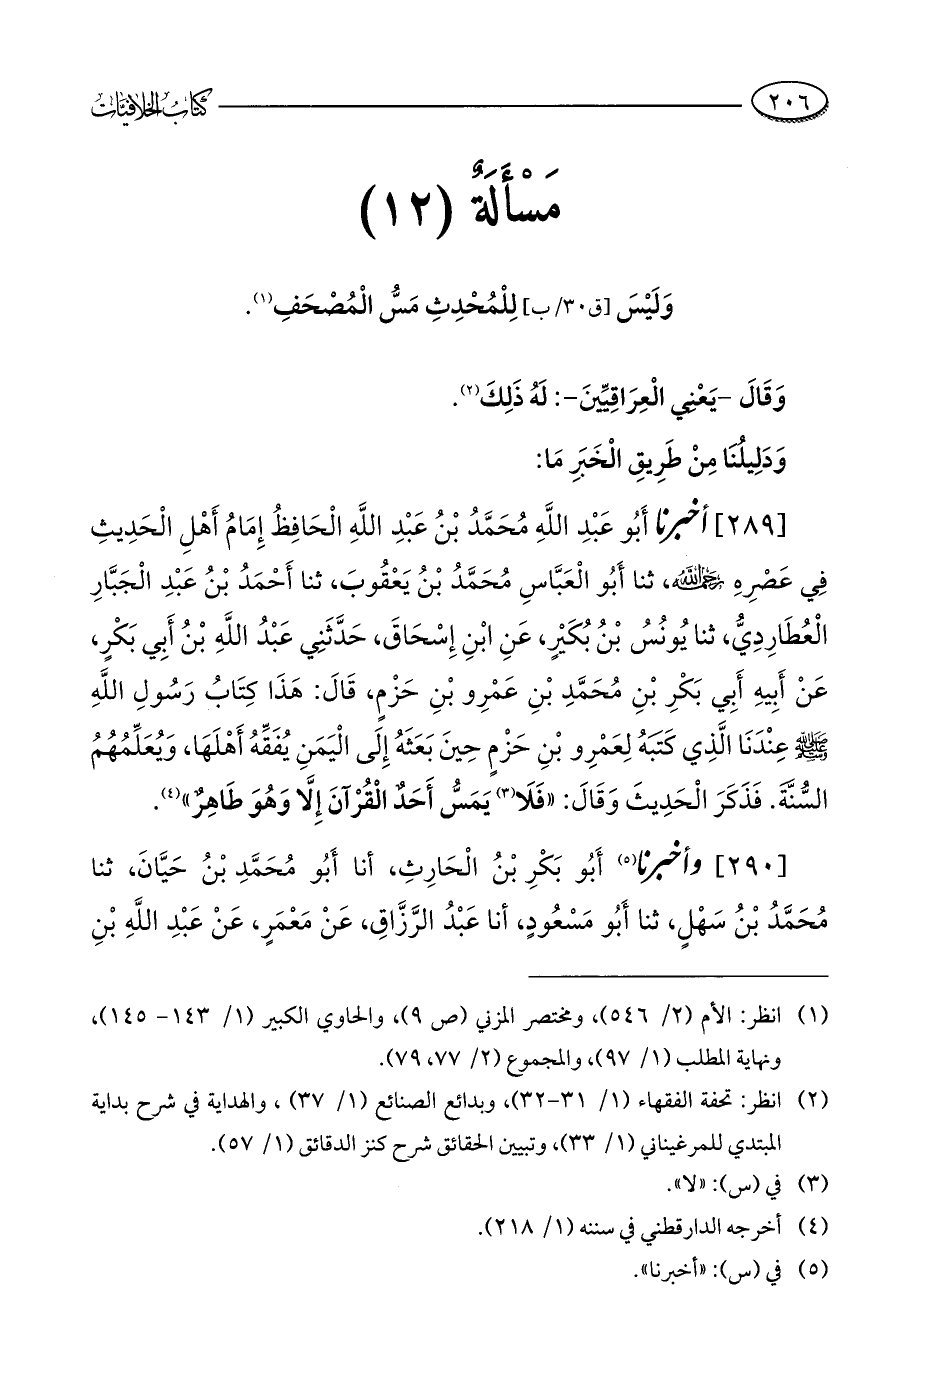 ٢٠٦ كتاب الخلافيات
مَسْأَلَةٌ (١٢)
وَلَيْسَ [ق٣٠/ ب] لِلْمُحْدِثِ مَسُّ الْمُصْحَفِ(١).
وَقَالَ -يَعْنِي الْعِرَاقِيِّينَ-: لَهُ ذَلِكَ(٢).
وَدَلِيلُنَا مِنْ طَرِيقِ الْخَبَرِ مَا:
[٢٨٩] أخبرنا أَبُو عَبْدِ اللَّهِ مُحَمَّدُ بْنُ عَبْدِ اللَّهِ الْحَافِظُ إِمَامُ أَهْلِ الْحَدِيثِ
فِي عَصْرِهِ رَحِمَهُ اللَّهُ، ثنا أَبُو الْعَبَّاسِ مُحَمَّدُ بْنُ يَعْقُوبَ، ثنا أَحْمَدُ بْنُ عَبْدِ الْجَبَّارِ
الْعُطَارِدِيُّ، ثنا يُونُسُ بْنُ بُكَيْرٍ، عَنِ ابْنِ إِسْحَاقَ، حَدَّثَنِي عَبْدُ اللَّهِ بْنُ أَبِي بَكْرٍ،
عَنْ أَبِيهِ أَبِي بَكْرِ بْنِ مُحَمَّدِ بْنِ عَمْرِو بْنِ حَزْمٍ، قَالَ: هَذَا كِتَابُ رَسُولِ اللَّهِ
ﷺ عِنْدَنَا الَّذِي كَتَبَهُ لِعَمْرِو بْنِ حَزْمٍ حِينَ بَعَثَهُ إِلَى الْيَمَنِ يُفَقِّهُ أَهْلَهَا، وَيُعَلِّمُهُمُ
السُّنَّةَ. فَذَكَرَ الْحَدِيثَ وَقَالَ: «فَلَا(٣) يَمَسُّ أَحَدٌ الْقُرْآنَ إِلَّا وَهُوَ طَاهِرٌ»(٤).
[٢٩٠] وأخبرنا(٥) أَبُو بَكْرِ بْنُ الْحَارِثِ، أنا أَبُو مُحَمَّدِ بْنُ حَيَّانَ، ثنا
مُحَمَّدُ بْنُ سَهْلٍ، ثنا أَبُو مَسْعُودٍ، أنا عَبْدُ الرَّزَّاقِ، عَنْ مَعْمَرٍ، عَنْ عَبْدِ اللَّهِ بْنِ
(١) انظر: الأم (٢/ ٥٤٦)، ومختصر المزني (ص ٩)، والحاوي الكبير (١/ ١٤٣- ١٤٥)،
ونهاية المطلب (١/ ٩٧)، والمجموع (٢/ ٧٧، ٧٩).
(٢) انظر: تحفة الفقهاء (١/ ٣١-٣٢)، وبدائع الصنائع (١/ ٣٧) ، والهداية في شرح بداية
المبتدي للمرغيناني (١/ ٣٣)، وتبيين الحقائق شرح كنز الدقائق (١/ ٥٧).
(٣) في (س): «لا».
(٤) أخرجه الدارقطني في سننه (١/ ٢١٨).
(٥) في (س): «أخبرنا».